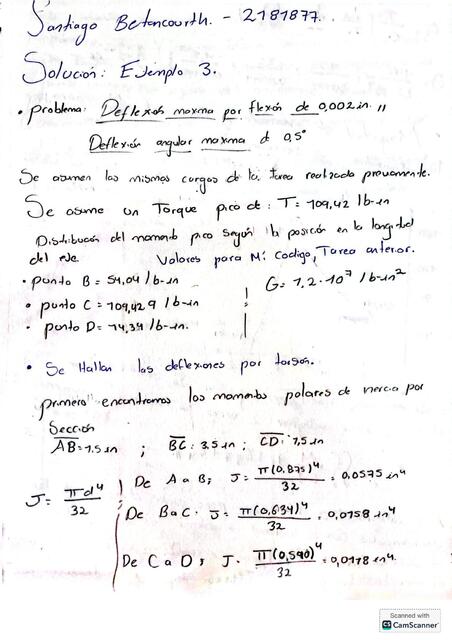 Santiago Betancourth. - 2181877.
Solución: Ejemplo 3.
• problema: Deflexión maxma por flexón de 0,002 in. "
Deflexión angular maxma d 0,5°
Se asumen las mismas cargas de la tarea realizada previamente.
Se asume un Torque pico de: T = 109,42 lb-in
Distribución del momento pico según la posición en la longitud
del eje. Valores para M: Codigo, Tarea anterior.
• punto B = 54,04 lb-in
G = 1,2 · 10⁷ lb-in²
• punto C = 109,429 lb-in
• punto D = 74,39 lb-in.
• Se Hallan las deflexiones por torsón.
primero" encontramos los momentos polares de inercia por
Sección
AB = 1,5 in ; BC : 3,5 in ; CD : 1,5 in
J = πd⁴/32
De A a B; J = π(0,875)⁴/32 = 0,0575 in⁴
De B a C · J = π(0,634)⁴/32 = 0,0158 in⁴
De C a D; J · π(0,590)⁴/32 = 0,0118 in⁴.
Scanned with
CS CamScanner